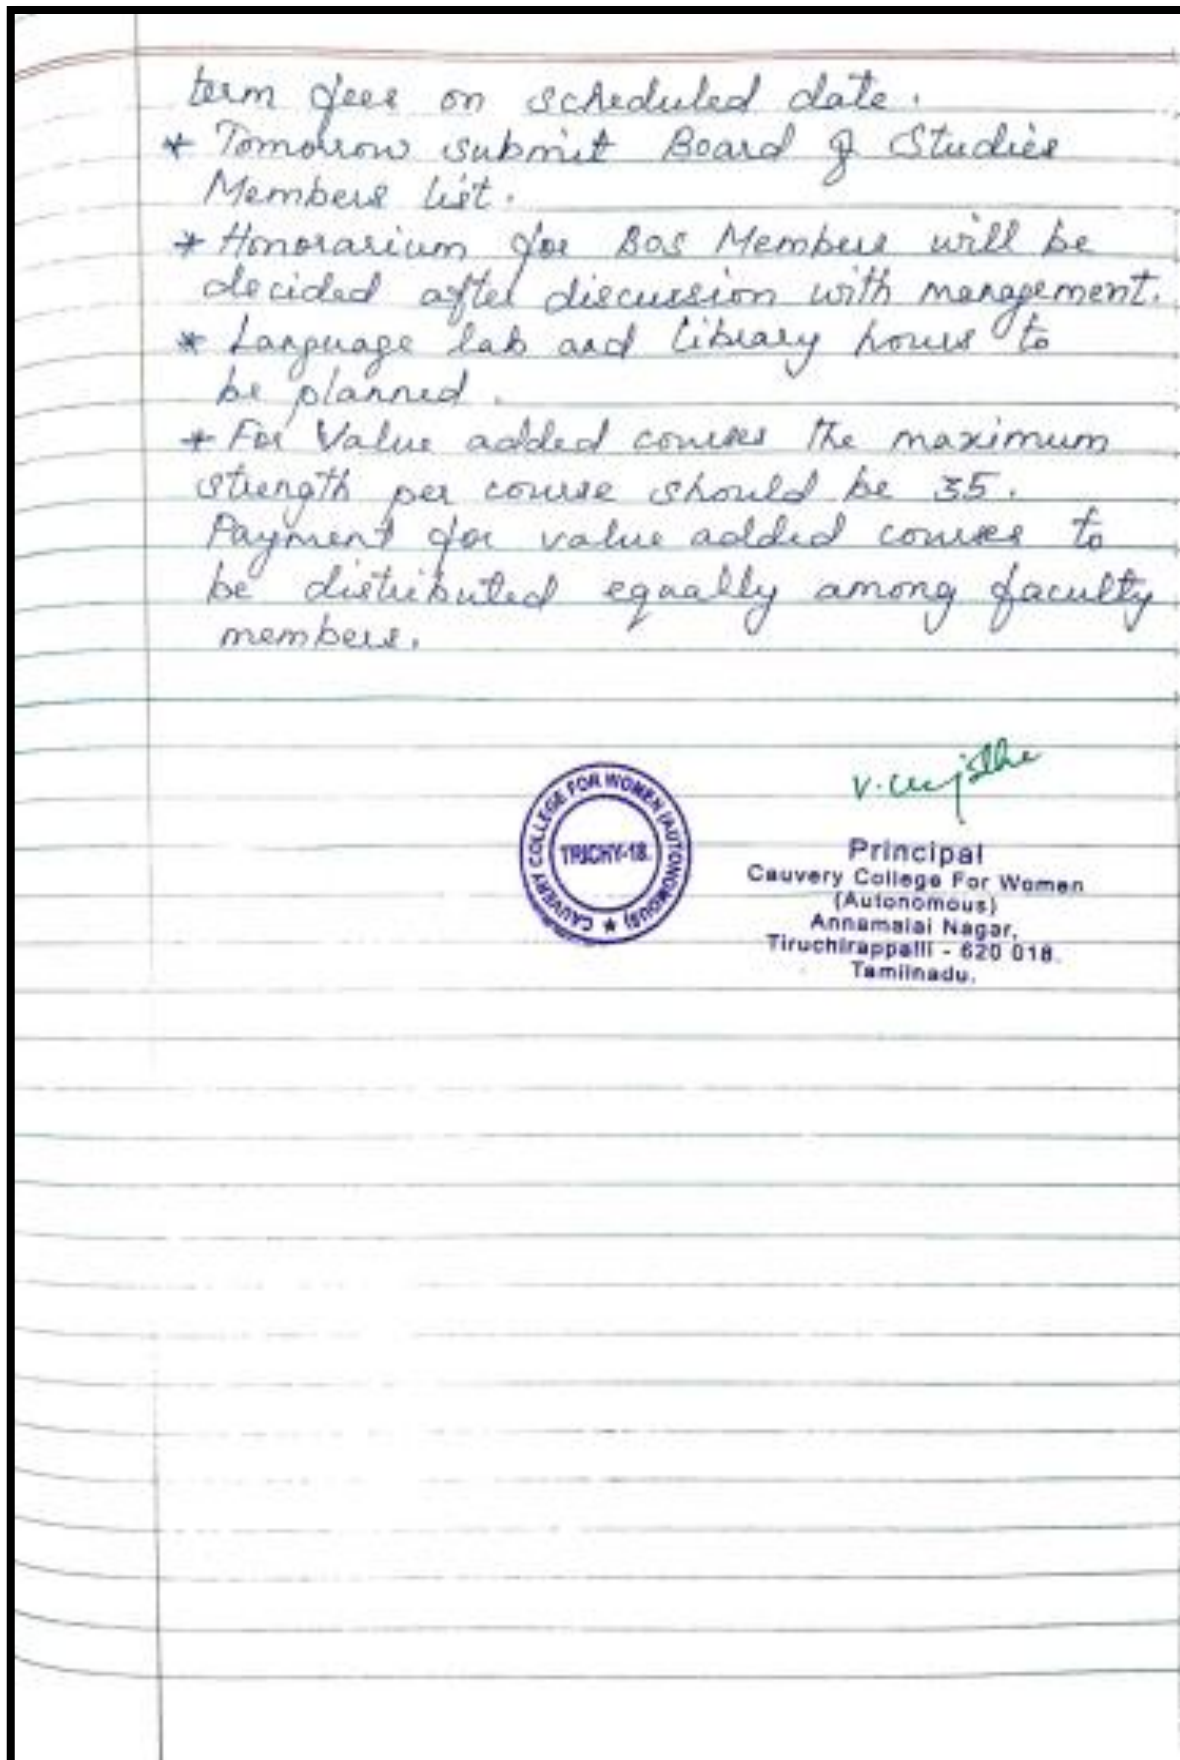 term fees on scheduled date.
* Tomorrow submit Board of Studies
Members list.
* Honorarium for BoS Members will be
decided after discussion with management.
* Language lab and Library hours to
be planned.
* For Value added courses the maximum
strength per course should be 35.
Payment for value added courses to
be distributed equally among faculty
members.
CAUVERY COLLEGE FOR WOMEN (AUTONOMOUS) ★
TRICHY-18.
Principal
Cauvery College For Women
(Autonomous)
Annamalai Nagar,
Tiruchirappalli - 620 018.
Tamilnadu.